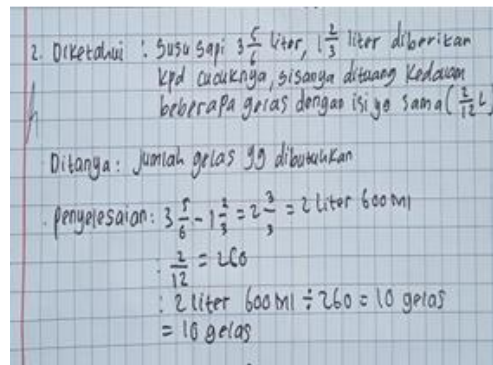 2. Diketahui : Susu sapi 3 5/6 liter, 1 2/3 liter diberikan
kpd cucuknya, sisanya dituang kedalam
beberapa gelas dengan isi yg sama (2/12 L)
Ditanya: Jumlah gelas yg dibutuhkan
Penyelesaian: 3 5/6 - 1 2/3 = 2 3/3 = 2 liter 600 ml
: 2/12 = 260
: 2 liter 600 ml ÷ 260 = 10 gelas
= 10 gelas